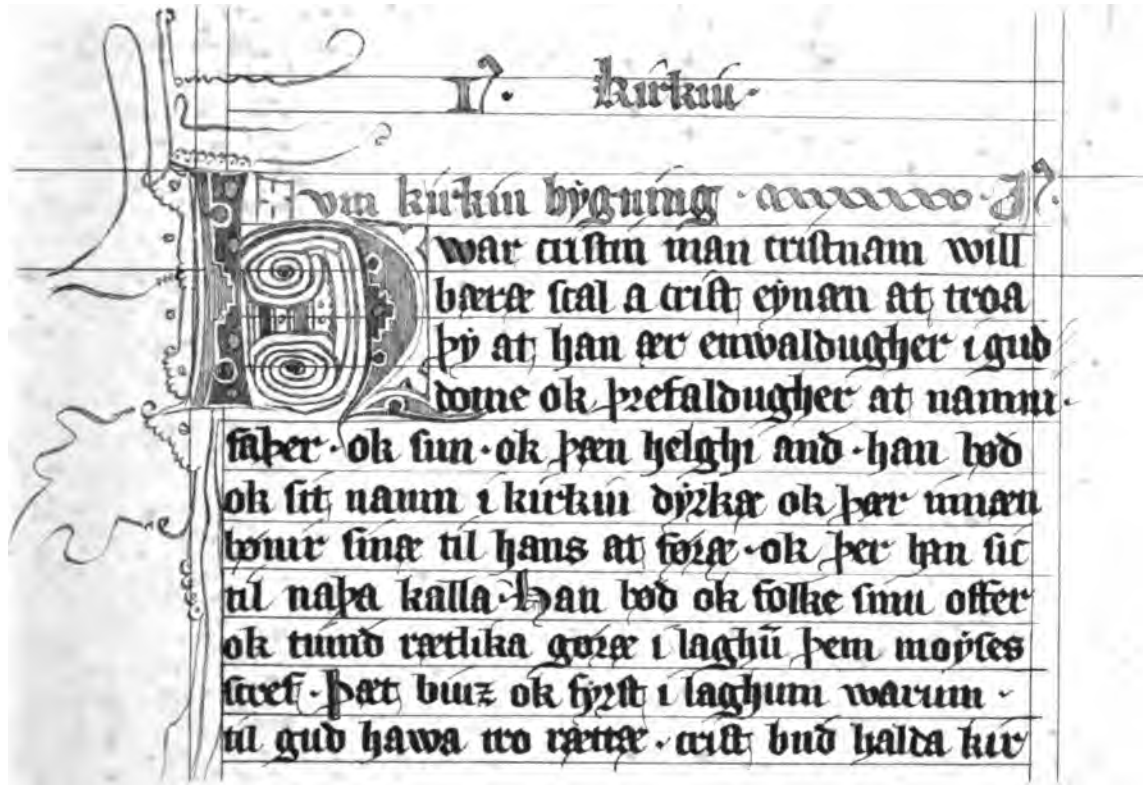 I7. kirkiu·
um kirkiu bygning · I7.
Hwar cristin man cristnam will
bæræ scal a crist eynæn at troa
þy at han ær enwaldugher i gud
dome ok þrefaldugher at namni·
faþer · ok sun · ok þæn helghi and · han bød
ok sit namn i kirkiu dyrkæ ok þær innæn
bønir sinæ til hans at føræ · ok þer han sic
til naþa kalla · han bød ok folke sinu offer
ok tiund rætlika gøræ i laghū þem moyses
scref · þæt biuz ok fyrst i laghum warum ·
til gud hawa tro rættæ · crist bud halda kir